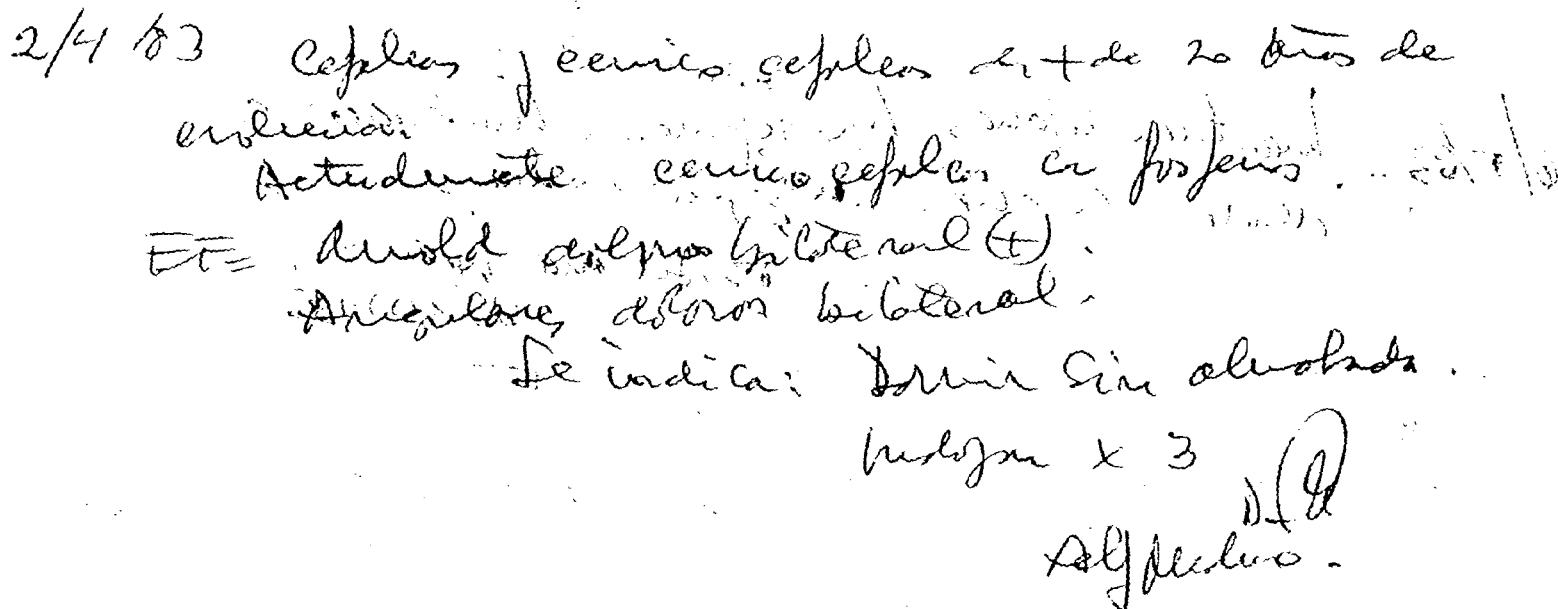 2/4 83 Cefaleas y cervico cefaleas de + de 20 años de
evolución.
Actualmente cervico cefalea con fosfenos.
EF= Arnold doloroso bilateral (+).
Angulares dolorosos bilateral.
Se indica: Dormir sin almohada.
x 3